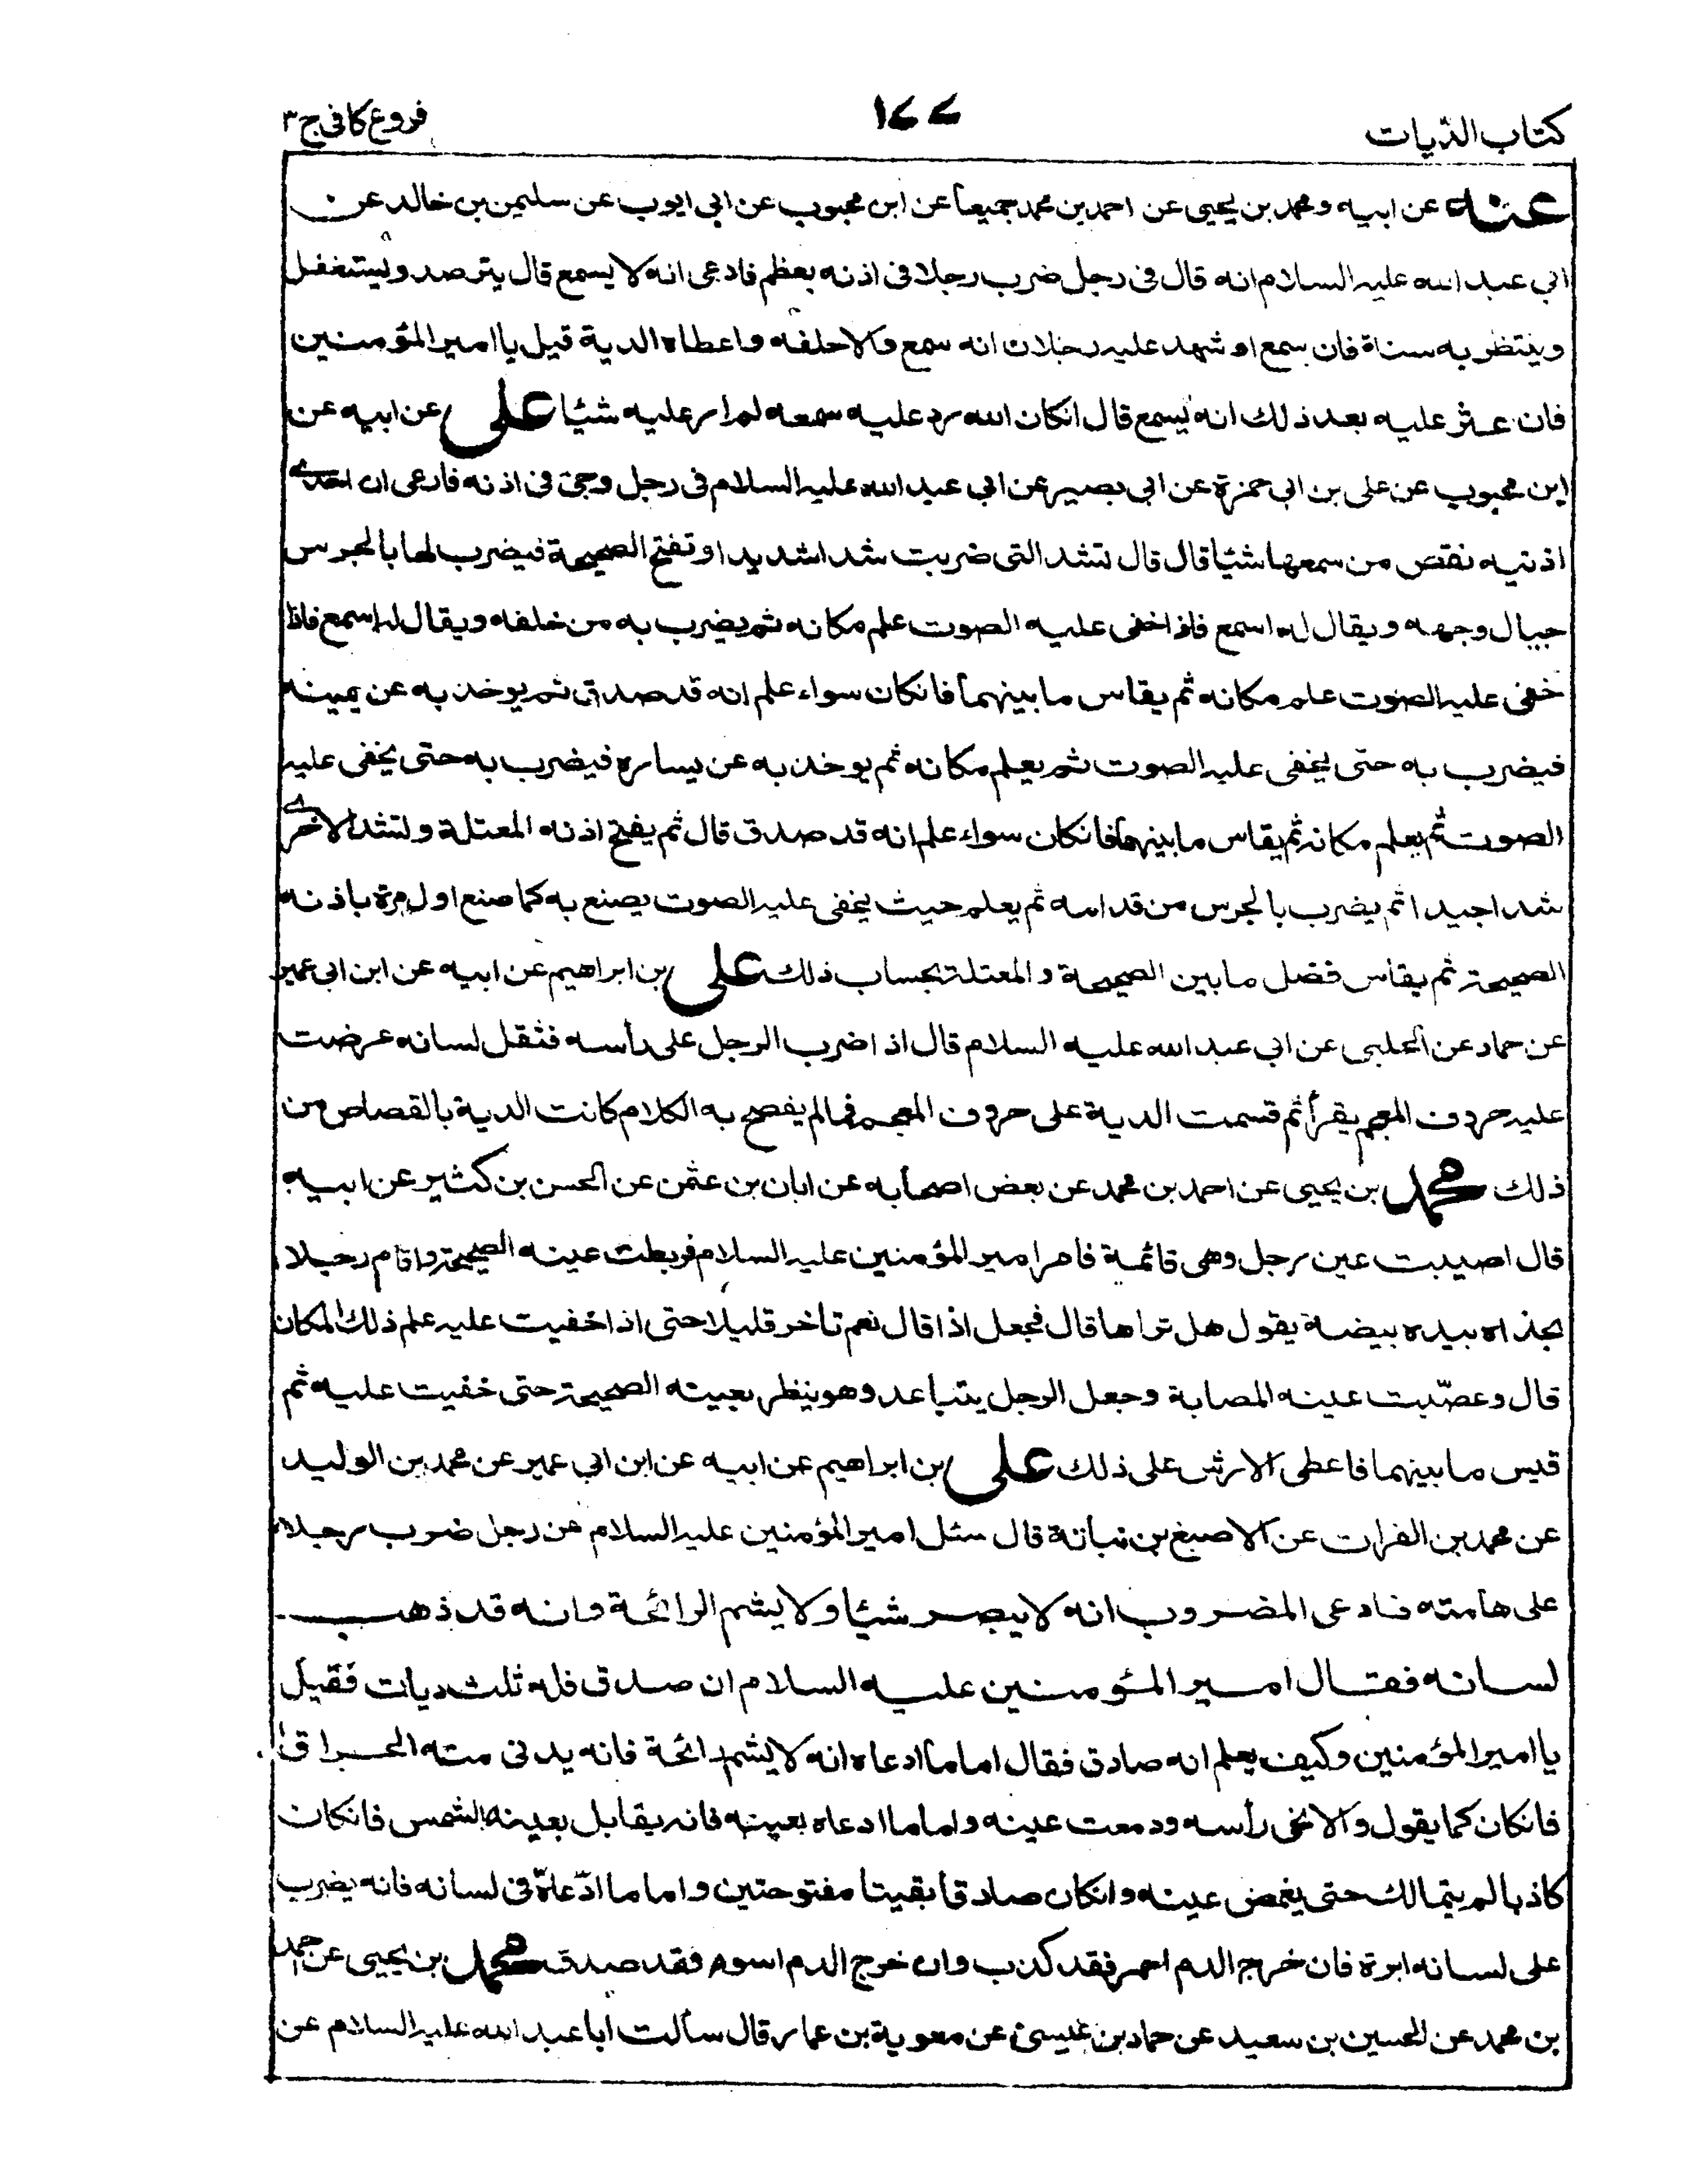 كتاب الديات
١٧٧
فروع كافى ج٣
عنه عن ابيه ومحمد بن يحيى عن احمد بن محمد جميعا عن ابن محبوب عن ابى ايوب عن سليمن بن خالد عن
ابي عبد الله عليه السلام انه قال فى رجل ضرب رجلا فى اذنه بعظم فادعى انه لا يسمع قال يترصد ويستغفل
وينتظر به سنة فان سمع او شهد عليه رجلان انه سمع والا حلفه واعطاه الدية قيل يا امير المؤمنين
فان عثر عليه بعد ذلك انه يسمع قال انكان الله رد عليه سمعه لم ار عليه شيئا على عن ابيه عن
ابن محبوب عن على بن ابي حمزة عن ابى بصير عن ابي عبد الله عليه السلام فى رجل وجئ فى اذنه فادعى ان احدى
اذنيه نقص من سمعها شيئا قال قال تشد التى ضربت شدا شديدا وتفتح الصحيحة فيضرب لها بالجرس
حيال وجهه ويقال له اسمع فاذا خفى عليه الصوت علم مكانه ثم يضرب به من خلفه ويقال له اسمع فاذا
خفى عليه الصوت علم مكانه ثم يقاس ما بينهما فانكان سواء علم انه قد صدق ثم يوخذ به عن يمينه
فيضرب به حتى يخفى عليه الصوت ثم يعلم مكانه ثم يوخذ به عن يساره فيضرب به حتى يخفى عليه
الصوت ثم يعلم مكانه ثم يقاس ما بينهما فانكان سواء علم انه قد صدق قال ثم يفتح اذنه المعتلة ولتشد الاخرى
شدا جيدا ثم يضرب بالجرس من قدامه ثم يعلم حيث يخفى عليه الصوت يصنع به كما صنع اول مرة باذنه
الصحيحة ثم يقاس فضل ما بين الصحيحة والمعتلة بحساب ذلك على بن ابراهيم عن ابيه عن ابن ابى عمير
عن حماد عن الحلبى عن ابي عبد الله عليه السلام قال اذا ضرب الرجل على رأسه فثقل لسانه عرضت
عليه حروف المعجم يقرأ ثم قسمت الدية على حروف المعجم فما لم يفصح به الكلام كانت الدية بالقصاص من
ذلك محمد بن يحيى عن احمد بن محمد عن بعض اصحابه عن ابان بن عثمن عن الحسن بن كثير عن ابيه
قال اصيبت عين رجل وهى قائمة فامر امير المؤمنين عليه السلام فربطت عينه الصحيحة واقام رجلا
بحذاه بيده بيضة يقول هل تراها قال فجعل اذا قال نعم تأخر قليلا حتى اذا خفيت عليه علم ذلك المكان
قال وعصّبت عينه المصابة وجعل الرجل يتباعد وهو ينظر بعينه الصحيحة حتى خفيت عليه ثم
قيس ما بينهما فاعطى الارش على ذلك على بن ابراهيم عن ابيه عن ابن ابي عمير عن محمد بن الوليد
عن محمد بن الفرات عن الاصبغ بن نباتة قال سئل امير المؤمنين عليه السلام عن رجل ضرب رجلا
على هامته فادعى المضروب انه لا يبصر شيئا ولا يشم الرائحة وانه قد ذهب
لسانه فقال امير المؤمنين عليه السلام ان صدق فله ثلث ديات فقيل
يا امير المؤمنين وكيف يعلم انه صادق فقال اما ما ادعاه انه لا يشم رائحة فانه يدنى منه الحراق
فانكان كما يقول والا نحى رأسه ودمعت عينه واما ما ادعاه بعينه فانه يقابل بعينه الشمس فانكان
كاذبا لم يتمالك حتى يغمض عينه وانكان صادقا بقيتا مفتوحتين واما ما ادّعاه فى لسانه فانه يضرب
على لسانه ابرة فان خرج الدم احمر فقد كذب وان خرج الدم اسود فقد صدق محمد بن يحيى عن احمد
بن محمد عن الحسين بن سعيد عن حماد بن عيسى عن معوية بن عمار قال سألت ابا عبد الله عليه السلام عن